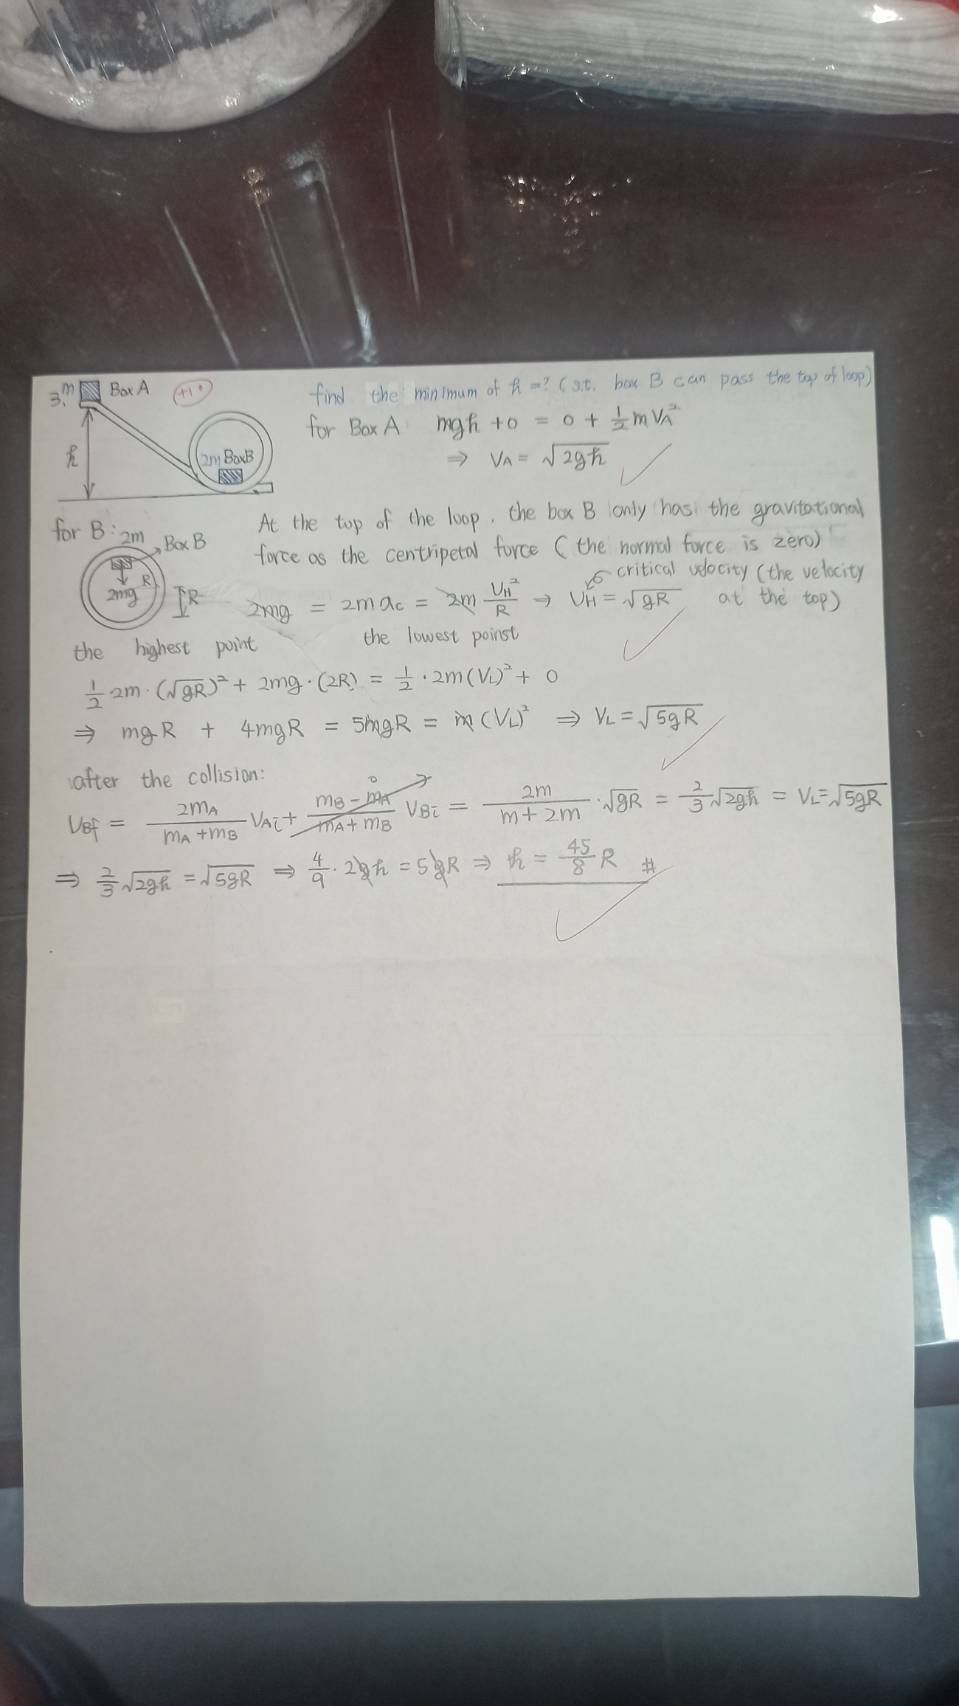 3. m Box A +10
find the minimum of h = ? (s.t. box B can pass the top of loop)
for Box A mgh + 0 = 0 + 1/2 m VA²
⇒ VA = √2gh
h
2m BoxB
for B: 2m Box B
At the top of the loop, the box B only has the gravitational
force as the centripetal force (the normal force is zero)
critical velocity (the velocity
at the top)
2mg R R
2mg = 2m ac = 2m VH²/R → VH = √gR
the highest point the lowest poinst
1/2 2m · (√gR)² + 2mg · (2R) = 1/2 · 2m (VL)² + 0
⇒ mgR + 4mgR = 5mgR = m (VL)² ⇒ VL = √5gR
after the collision:
VBf = 2mA/(mA + mB) VAi + (mB - mA)/(mA + mB) VBi 0 = 2m/(m + 2m) · √gR = 2/3 √2gh = VL = √5gR
⇒ 2/3 √2gh = √5gR ⇒ 4/9 · 2gh = 5gR ⇒ h = 45/8 R #